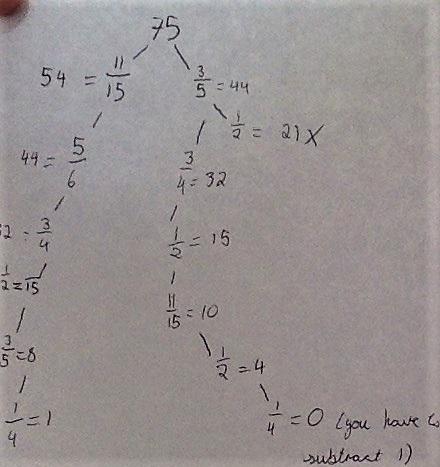 75
54 = 11/15
3/5 = 44
1/2 = 21 X
44 = 5/6
3/4 = 32
2 = 3/4
1/2 = 15
1/2 = 15
11/15 = 10
3/5 = 8
1/2 = 4
1/4 = 1
1/4 = 0 (you have
subtract 1)